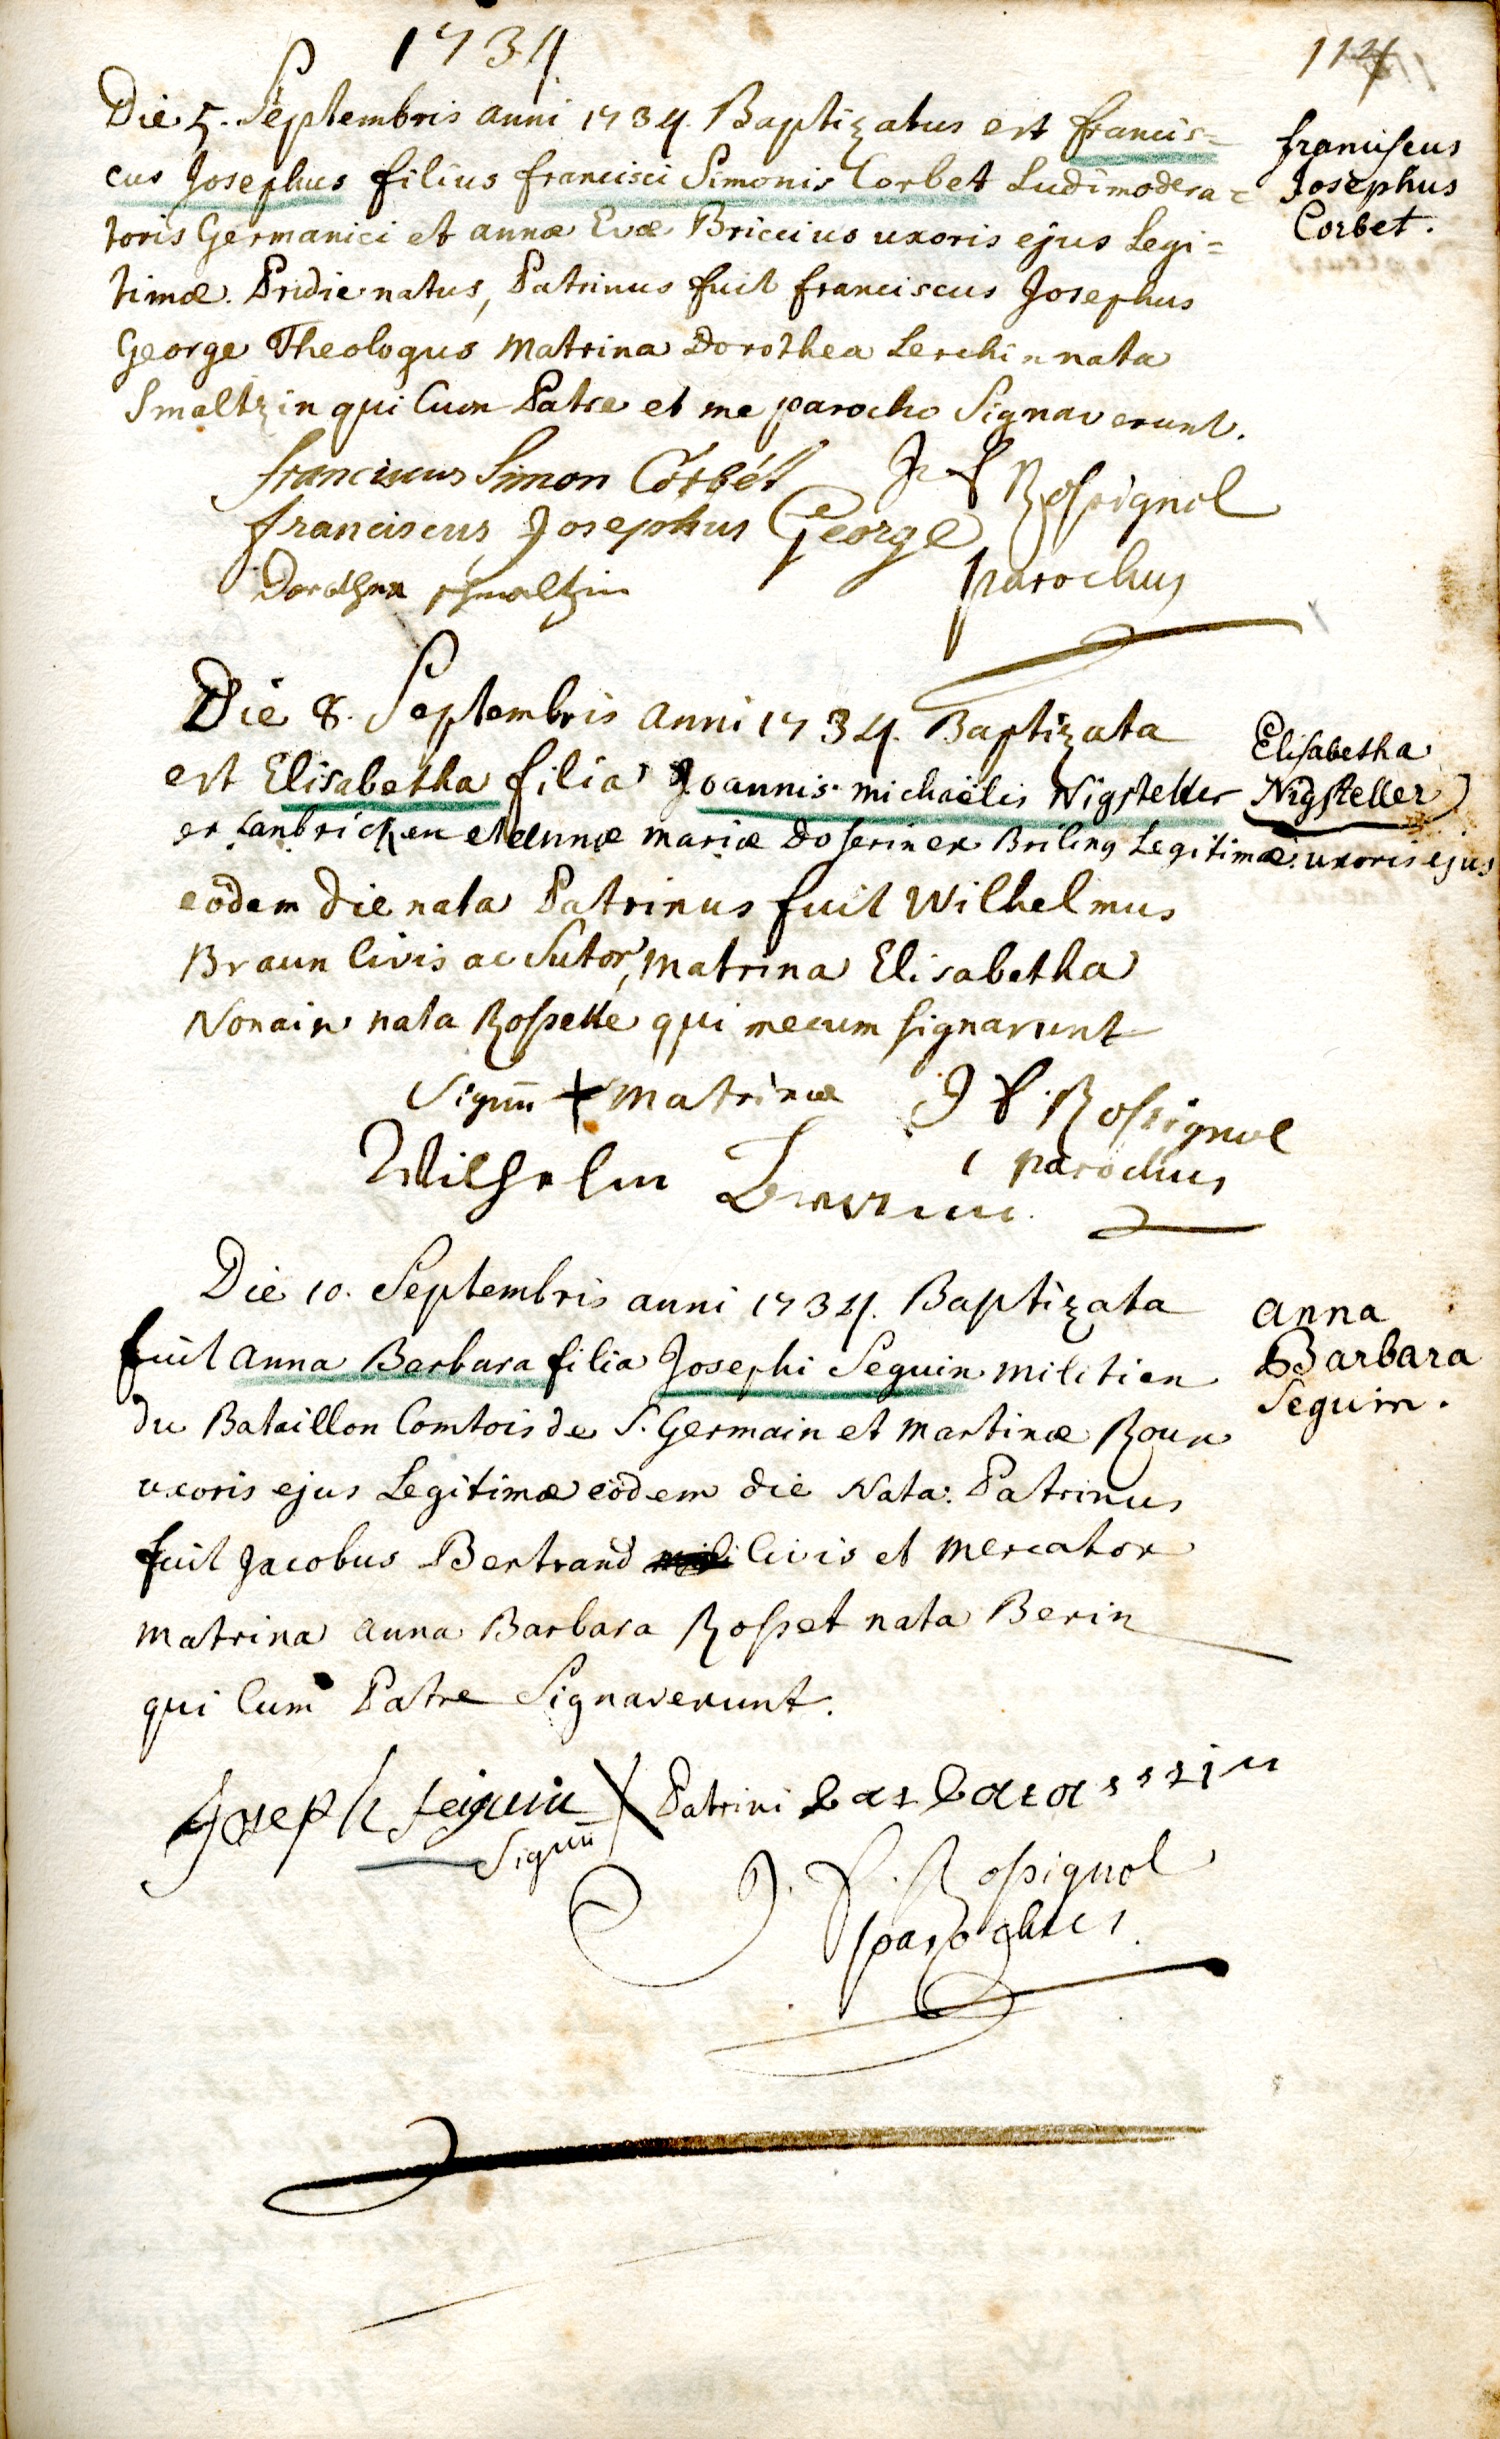 1734
Die 5. Septembris anni 1734. Baptizatus est francis=
cus Josephus filius francisci Simonis Corbet Ludimodera=
toris Germanici et annæ Evæ Briccius uxoris ejus Legi=
timæ. Pridie natus, Patrinus fuit franciscus Josephus
George Theologus Matrina Dorothea Lerchin nata
Smaltzin qui Cum Patre et me parocho Signaverunt.
franciscus
Josephus
Corbet.
franciscus Simon Corbét
franciscus Josephus George
Dorothea schmaltzin
Rossignol
parochus
Die 8. Septembris anni 1734. Baptizata
est Elisabetha filia Joannis michaëlis Nigsteller
ex Lanbricken et annæ mariæ Doserin ex Briling Legitimæ uxoris ejus
eôdem die nata Patrinus fuit Wilhelmus
Braun Civis ac Sutor, Matrina Elisabetha
Nonain nata Rosselle qui mecum signarunt
Elisabetha
Nigsteller
Signū + Matrinæ
Wilhelm Braun
J Rossignol
parochus
Die 10. Septembris anni 1734. Baptizata
fuit anna Barbara filia Josephi Seguin Militien
du Bataillon Comtois de S. Germain et Martinæ Roux
uxoris ejus Legitimæ eôdem die Nata. Patrinus
fuit Jacobus Bertrand Civis et Mercator
Matrina anna Barbara Rosset nata Berin
qui Cum Patre Signaverunt.
anna
Barbara
Seguin.
Joseph seiguin
Signū X Patrini
J. Rossignol
parochus